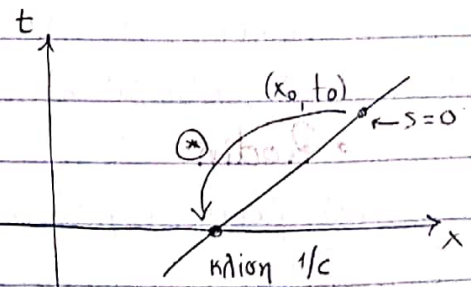 t
(x₀, t₀)
← s=0
(*)
x
κλίση 1/c